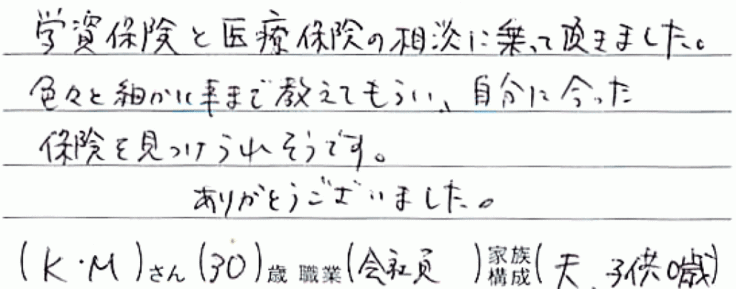 学資保険と医療保険の相談に乗って頂きました。
色々と細かい事まで教えてもらい、自分に合った
保険を見つけられそうです。
ありがとうございました。
(K・M)さん(30)歳 職業(会社員)家族構成(夫、子供0歳)